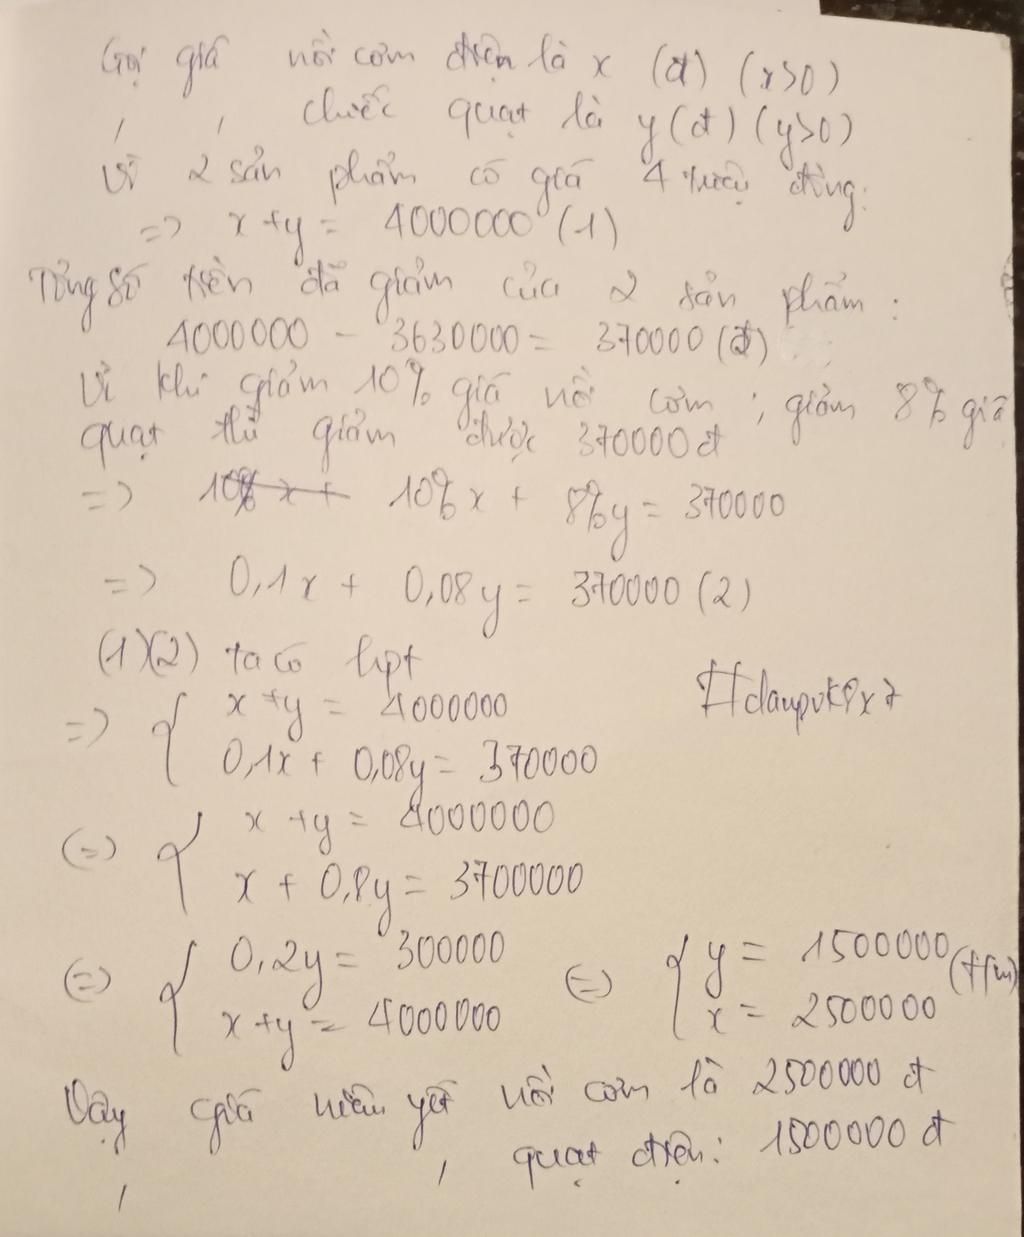 Gọi giá nồi cơm điện là x (đ) (x>0)
, , chiếc quạt là y (đ) (y>0)
Vì 2 sản phẩm có giá 4 triệu đồng:
=> x+y = 4000000 (1)
Tổng số tiền đã giảm của 2 sản phẩm:
4000000 - 3630000 = 370000 (đ)
Vì khi giảm 10% giá nồi cơm ; giảm 8% giá
quạt thì giảm được 370000 đ
=> 10% x + 10% x + 8% y = 370000
=> 0,1x + 0,08y = 370000 (2)
(1)(2) ta có hpt
=> { x+y = 4000000
0,1x + 0,08y = 370000
#daupvk9x7
(=) { x+y = 4000000
x + 0,8y = 3700000
(=) { 0,2y = 300000 (=) { y = 1500000 (t/m)
x+y = 4000000 x = 2500000
Vậy giá niêm yết nồi cơm là 2500000 đ
, , quạt điện: 1500000 đ